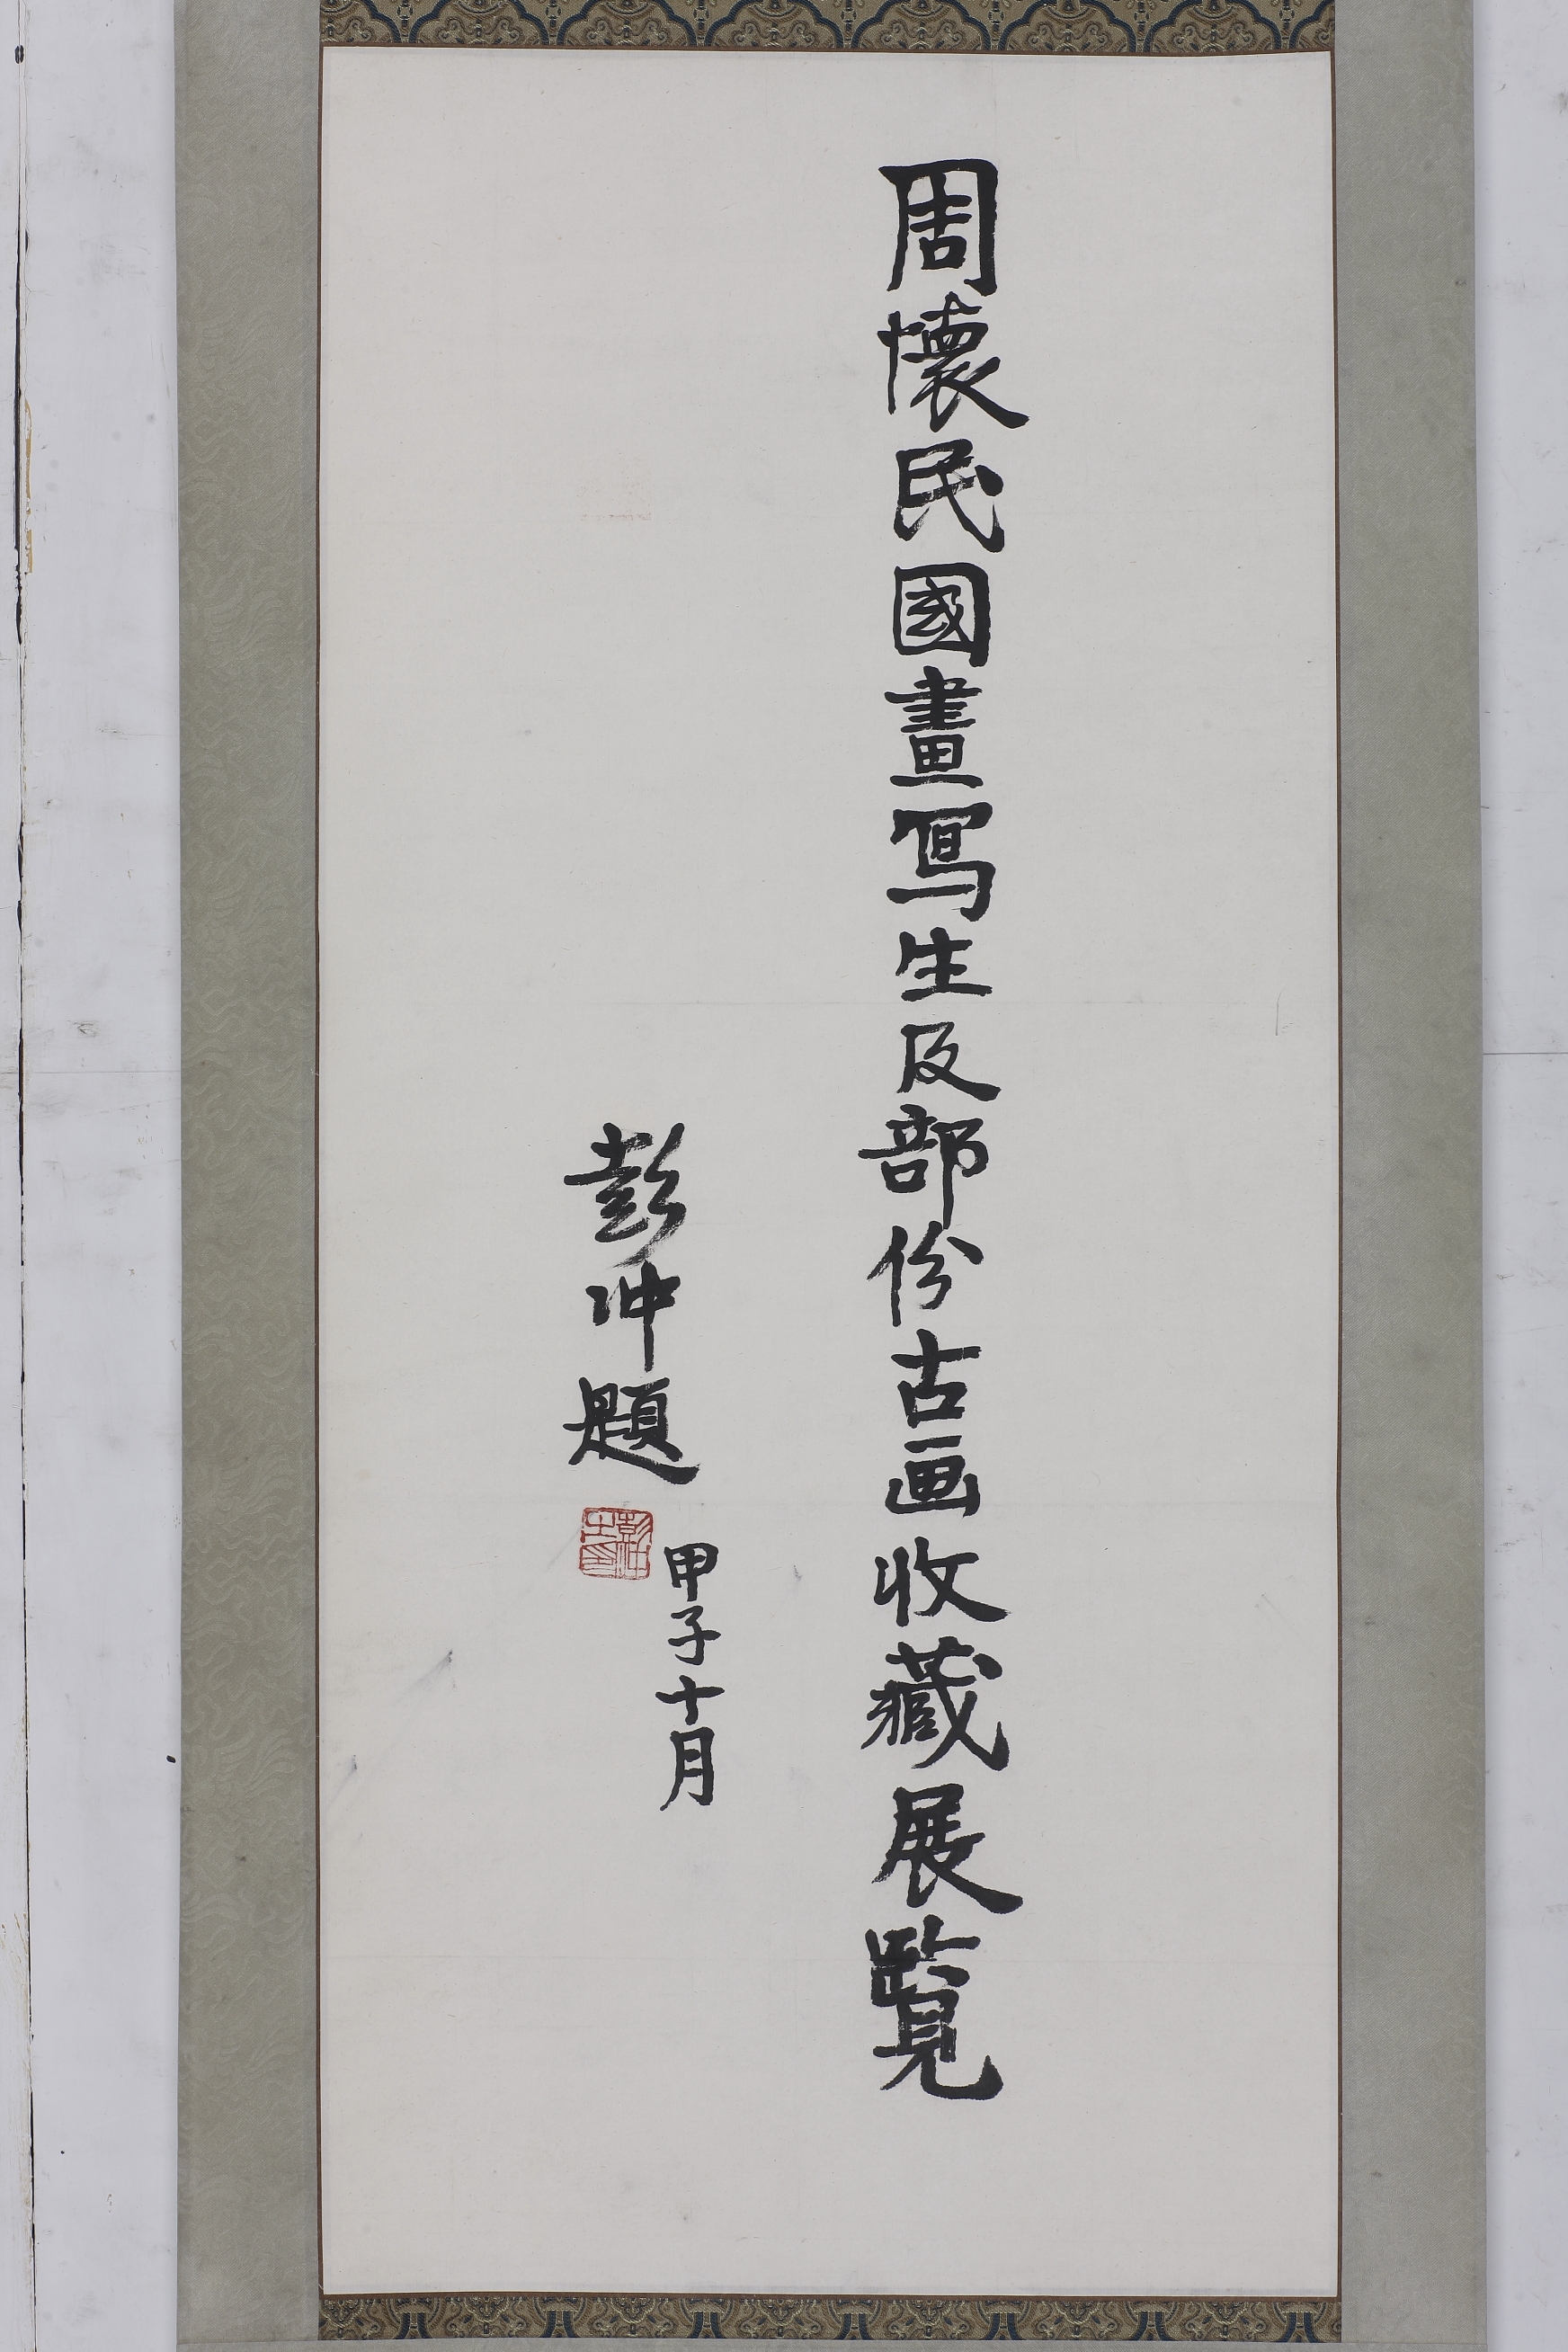 周懷民國畫寫生及部份古画收藏展覽
彭冲題
甲子十月